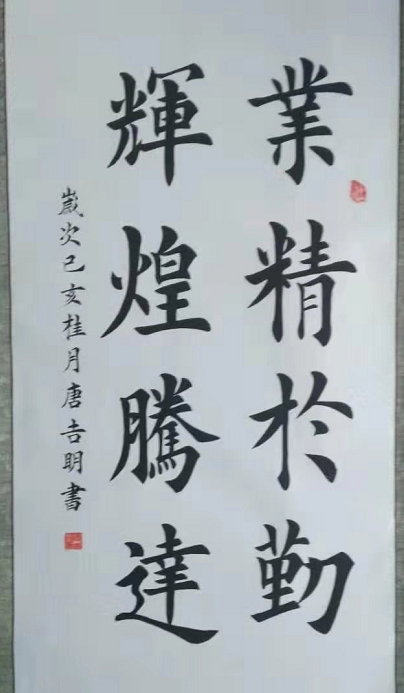 業精於勤
輝煌騰達
歲次己亥桂月唐吉明書